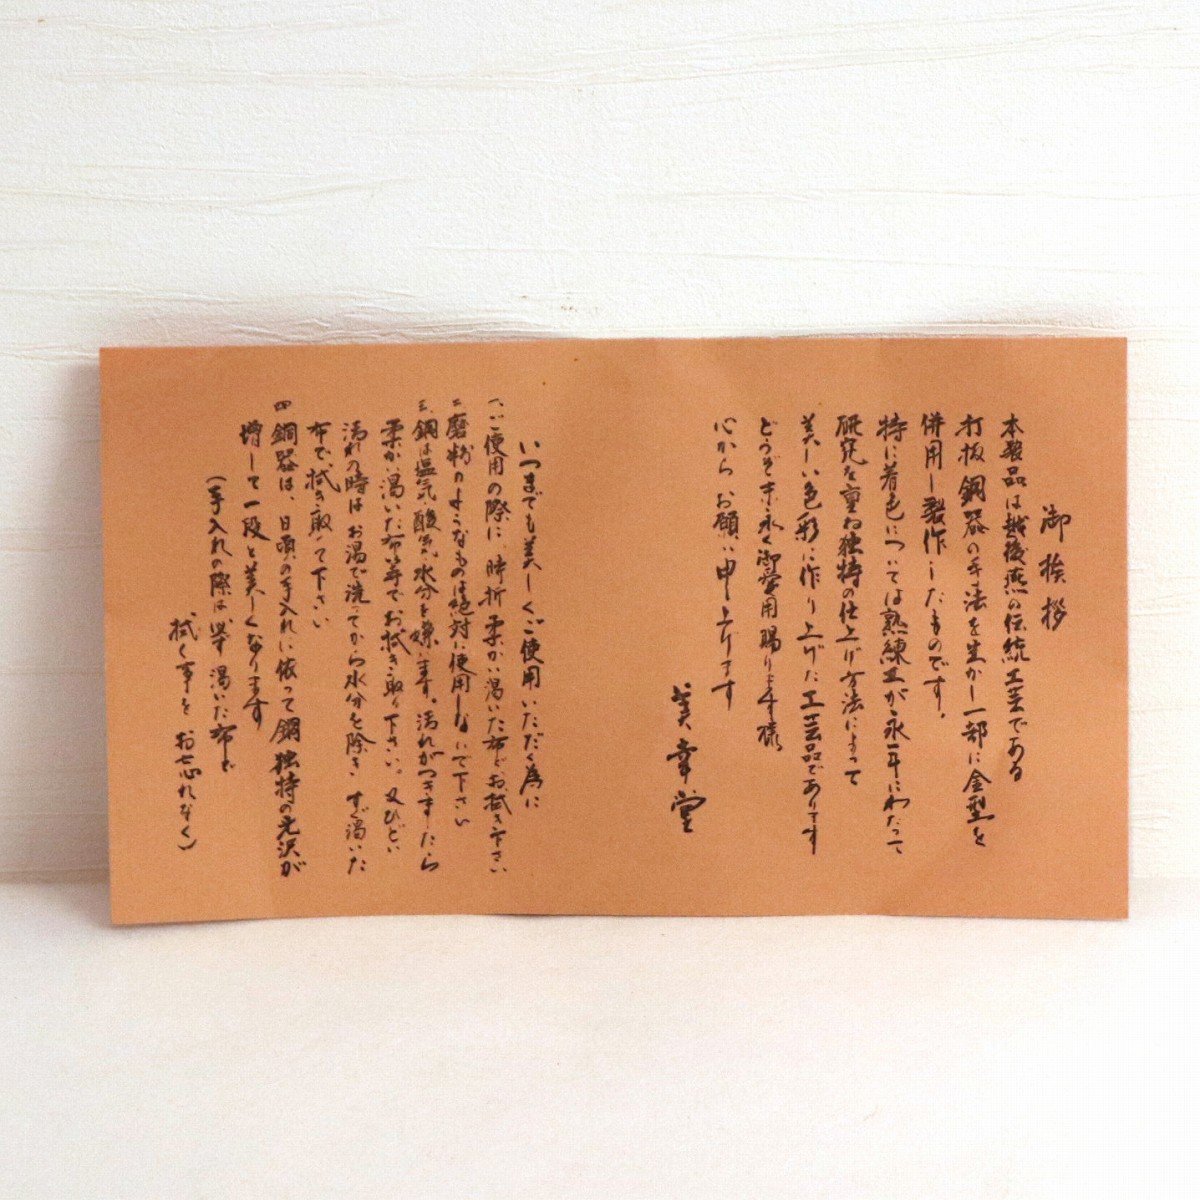 御挨拶
本製品は越後燕の伝統工芸である
打抜銅器の手法を生かし一部に金型を
併用し製作したものです。
特に着色については熟練工が永年にわたって
研究を重ね独特の仕上げ方法によって
美しい色彩に作り上げた工芸品であります
どうぞ末永く御愛用賜ります様
心からお願い申上げます
美幸堂
いつまでも美しくご使用いただく為に
一、ご使用の際に、時折柔かい渇いた布でお拭き下さい
二、磨粉のようなものは絶対に使用しないで下さい
三、銅は塩気、酸気、水分を嫌います。汚れがつきましたら
柔かい渇いた布等でお拭き取り下さい。又ひどい
汚れの時はお湯で洗ってから水分を除きすぐ渇いた
布で拭き取って下さい
四、銅器は、日頃の手入れに依って銅独特の光沢が
増して一段と美しくなります
(手入れの際は必ず渇いた布で
拭く事をお忘れなく)